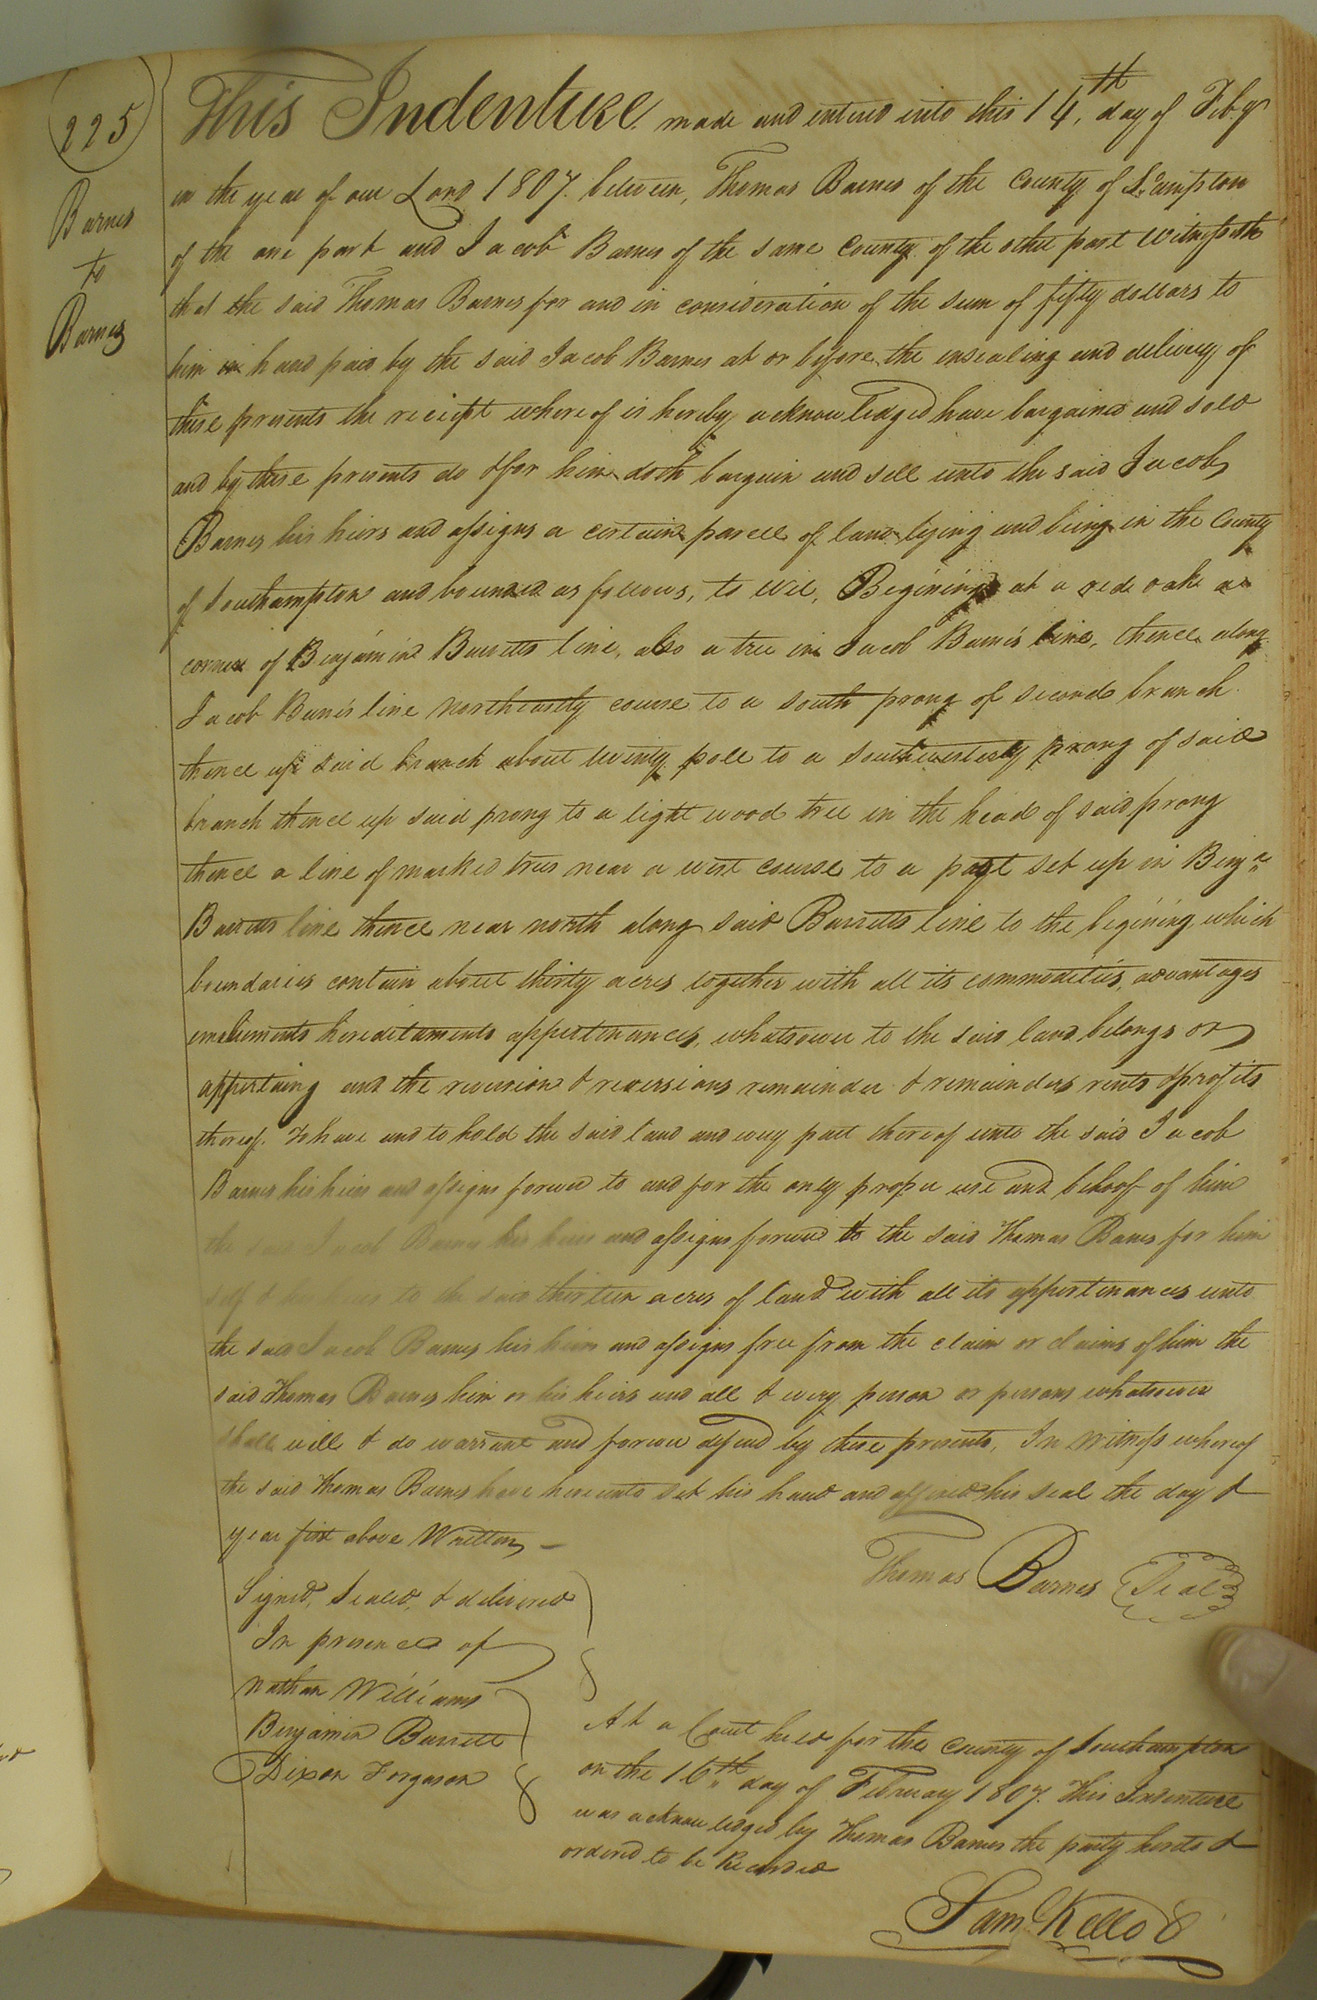 225
Barnes
to
Barnes
This Indenture made and entered into this 14th day of Feby
in the year of our Lord 1807. between, Thomas Barnes of the County of S.ampton
of the one part and Jacob Barnes of the same County of the other part Witnesseth
that the said Thomas Barnes for and in consideration of the sum of fifty dollars to
him in hand paid by the said Jacob Barnes at or before the ensealing and delivery of
these presents the reciept whereof is hereby acknowledged have bargained and sold
and by these presents do & for him doth bargain and sell unto the said Jacob
Barnes his heirs and assigns a certain parcel of land lying and being in the County
of Southampton and bounded as follows, to wit, Begining at a red oake a
corner of Benjamine Barretts line, also a tree in Jacob Barns line, thence along
Jacob Barns line northeastly course to a south prong of second branch
thence up said branch about twenty pole to a southwesterly prong of said
branch thence up said prong to a light wood tree in the head of said prong
thence a line of marked trees near a west course to a post set up in Benjn
Barretts line thence near north along said Barretts line to the begining which
boundaries contain about thirty acres together with all its commodities, advantages
emoluments hereditaments appertinances, whatsoever to the said land belongs or
appertaing and the revercion & reversions remainder & remainders rents & profits
thereof. To have and to hold the said land and every part thereof unto the said Jacob
Barnes his heirs and assigns forever to and for the only proper use and behoof of him
the said Jacob Barnes his heirs and assigns forever & the said Thomas Barnes for him
self & his heirs to the said thirteen acres of land with all its appertinances unto
the said Jacob Barnes his heirs and assigns free from the claim or claims of him the
said Thomas Barnes him or his heirs and all & every person or persons whatsoever
shall will & do warrant and forever defend by these presents, In Witness whereof
the said Thomas Barnes have hereunto set his hand and affixed his seal the day &
year first above Written
Thomas Barnes Seal
Signed, Sealed, & delivered
In presence of
Nathan Williams
Benjamin Barrett
Dixon Forguson
At a Court held for the County of Southampton
on the 16th day of February 1807. This Indenture
was acknowledged by Thomas Barnes the party hereto &
ordered to be Recorded
Sam. Kello